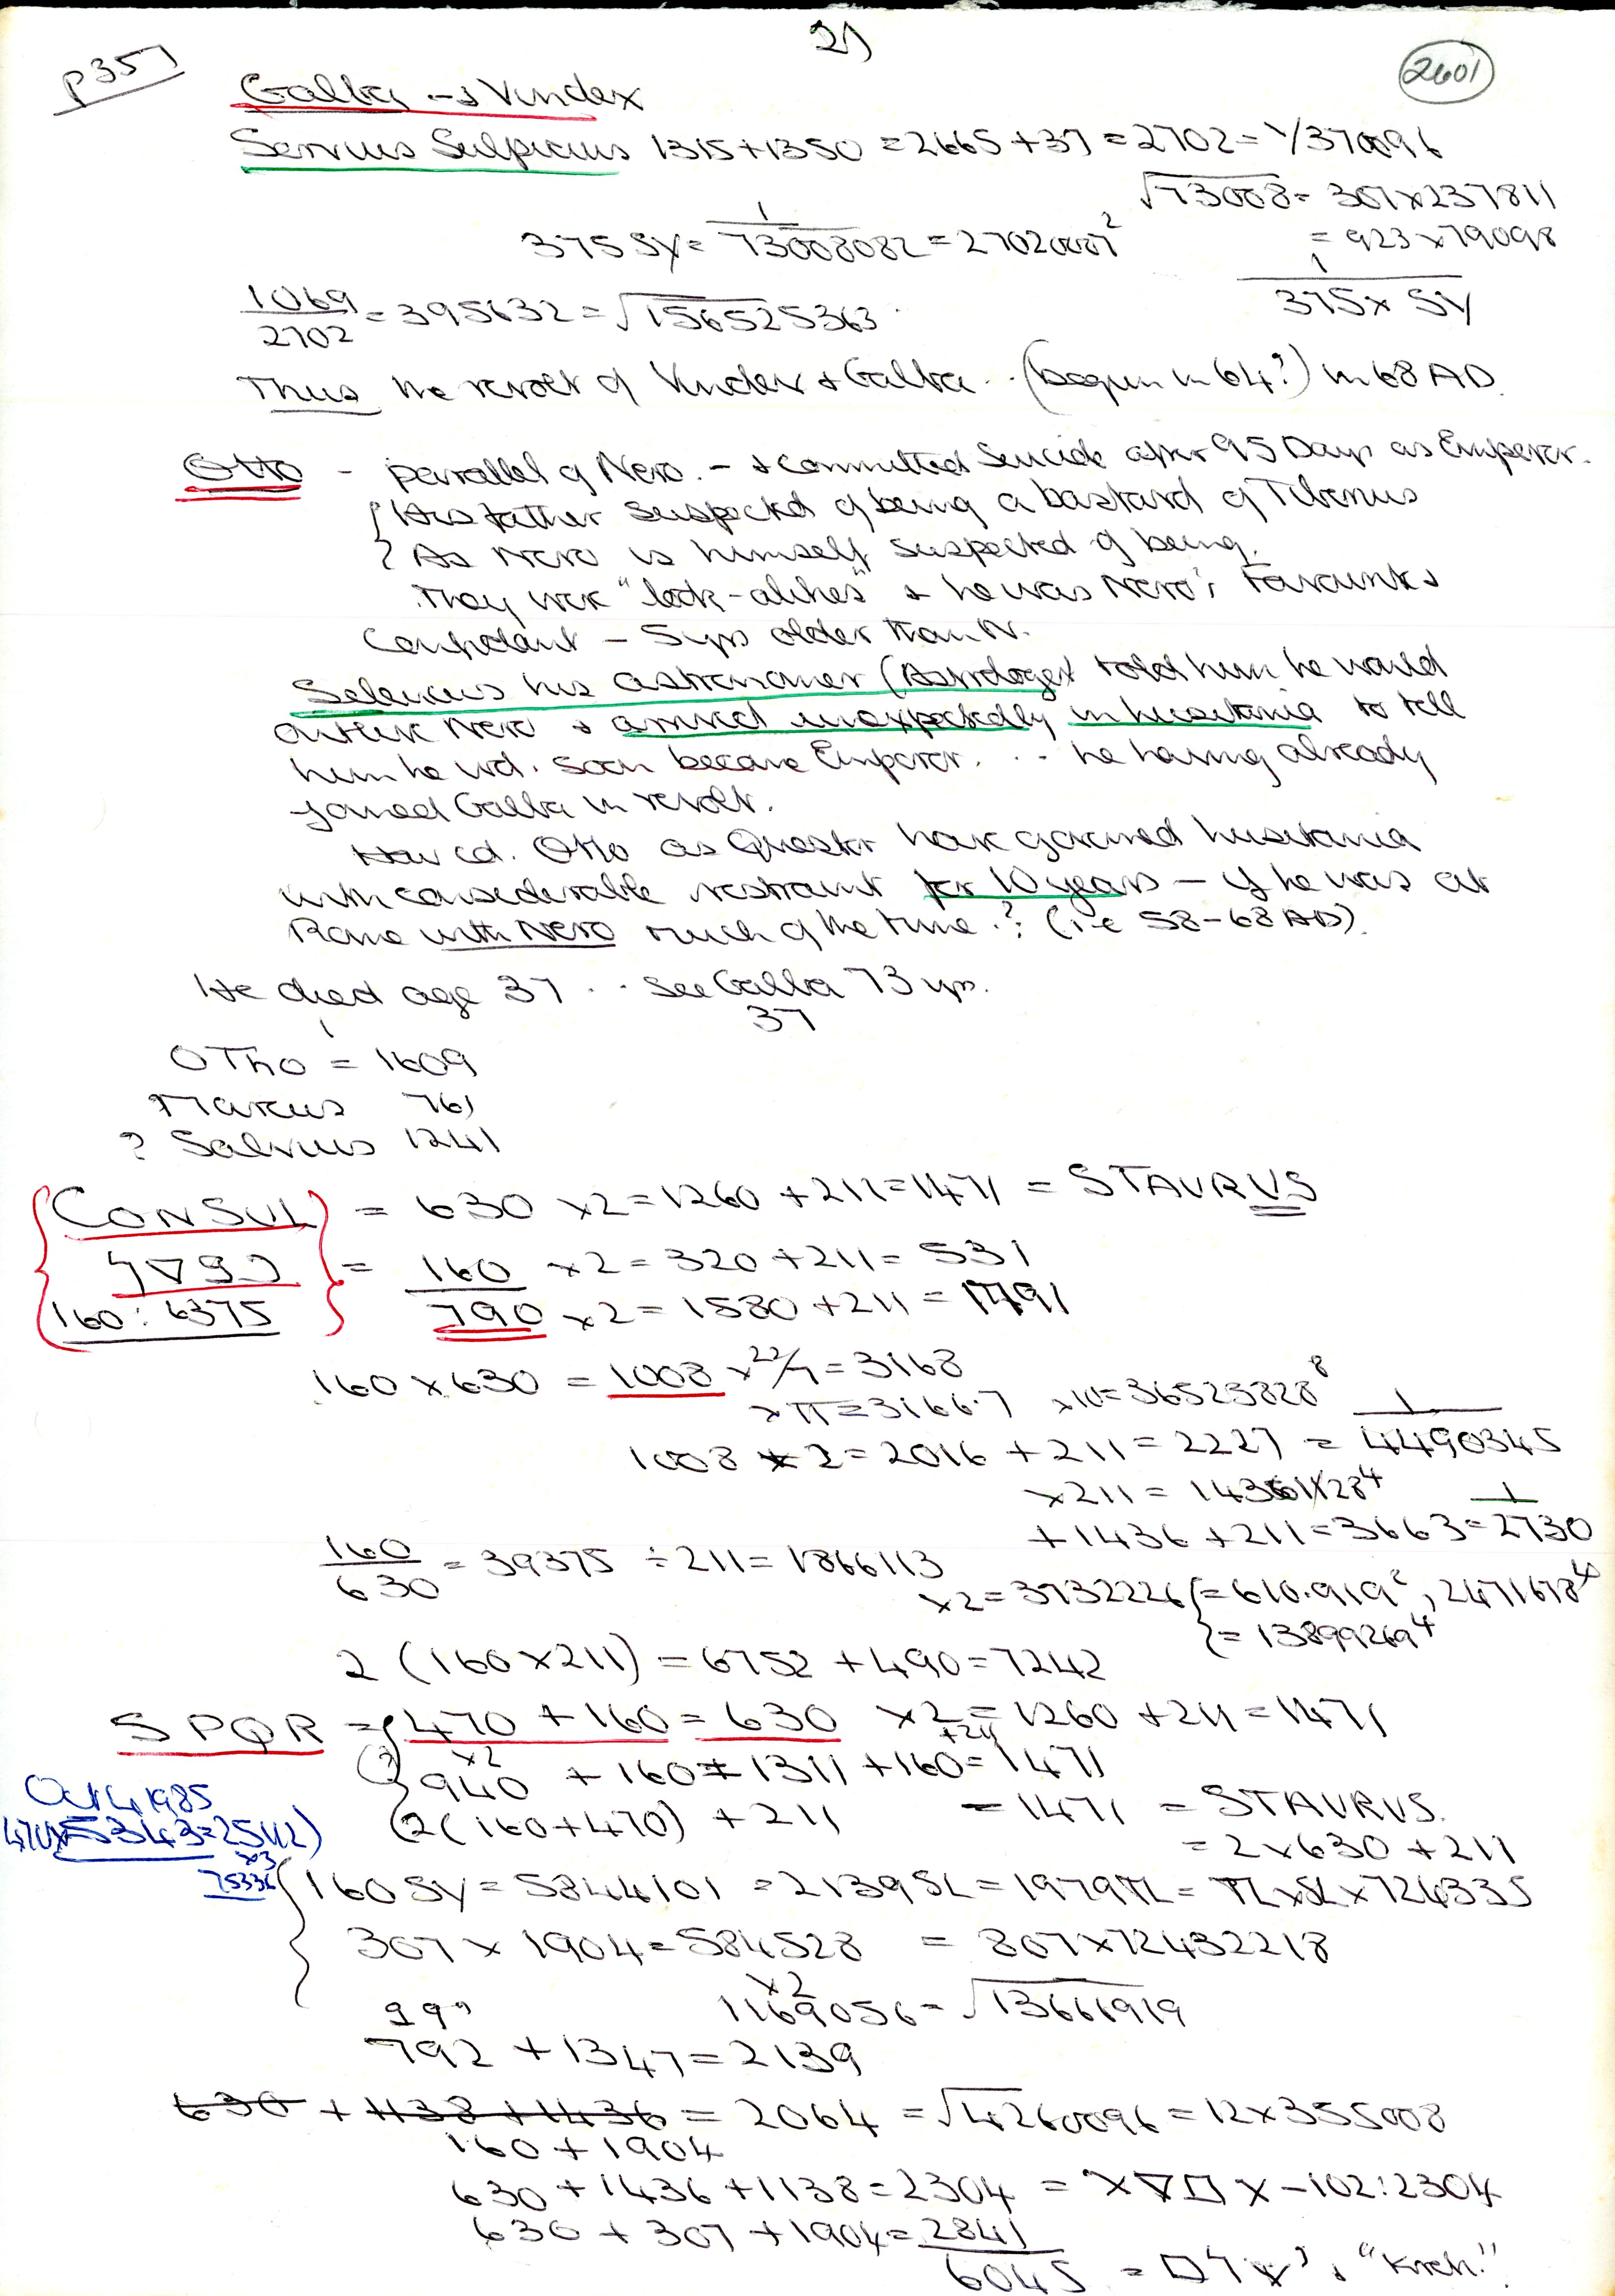 21
p357
2601
Galba → Vindex
Servius Sulpicius 1315+1350 = 2665+37 = 2702 = 1/370096
√73008 = 307×237811
375 SY = 1/73008082 = 27020007²
= 923×79098
1069/2702 = 395632 = √156525363
1/375× SY
Thus the revolt of Vindex & Galba .. (begun in 64?) in 68 AD.
Otto - parallel of Nero. - & committed Suicide after 95 Days as Emperor.
His father suspected of being a bastard of Tiberius
As Nero is himself suspected of being.
They were "look-alikes" & he was Nero's favourite &
Confidant - 5 yrs older than N.
Seleucus his astronomer (Astrologer) told him he would
outlive Nero & arrived unexpectedly in Lusitania to tell
him he wd. soon become Emperor. .. he having already
joined Galba in revolt.
How cd. Otto as Questor have governed Lusitania
with considerable restraint for 10 years - if he was at
Rome with Nero much of the time ?: (i.e 58-68 AD).
He died age 37 .. see Galba 73 yrs.
37
OTho = 1609
Marcus 761
? Salvius 1241
CONSUL = 630 ×2 = 1260 + 211 = 1471 = STAURUS
= 160 ×2 = 320 + 211 = 531
160 : 6375
790 ×2 = 1580 + 211 = 1791
160 × 630 = 1008 × 22/7 = 3168
×π = 3166.7 ×10 = 36523828⁸
1008 × 2 = 2016 + 211 = 2227 = 1/4490345
×211 = 14361128⁴
+1436 + 211 = 3663 = 1/2730
160/630 = 39375 ÷ 211 = 1866113
×2 = 3732226 = 610.919², 2471678⁴⁰
= 13899269⁴
2 (160×211) = 6752 + 490 = 7242
SPQR = 470 + 160 = 630 ×2 = 1260 + 211 = 1471
×2 +211
(?) 940 + 160 = 1311 + 160 = 1471
Oct 4 1985
(2(160+470) + 211 = 1471 = STAURUS.
470×5343 = 25112)
= 2×630 + 211
×3
75336
160 SY = 5844101 = 2139 SL = 1979 πL = πL×SL×724335
307 × 1904 = 584528 = 807×72432218
×2
1169056 = √13666919
792 + 1347 = 2139
630 + 1138 + 1436 = 2064 = √4260096 = 12×355008
160 + 1904
630 + 1436 + 1138 = 2304 = X∇□X - 102:2304
630 + 307 + 1904 = 2841
6045